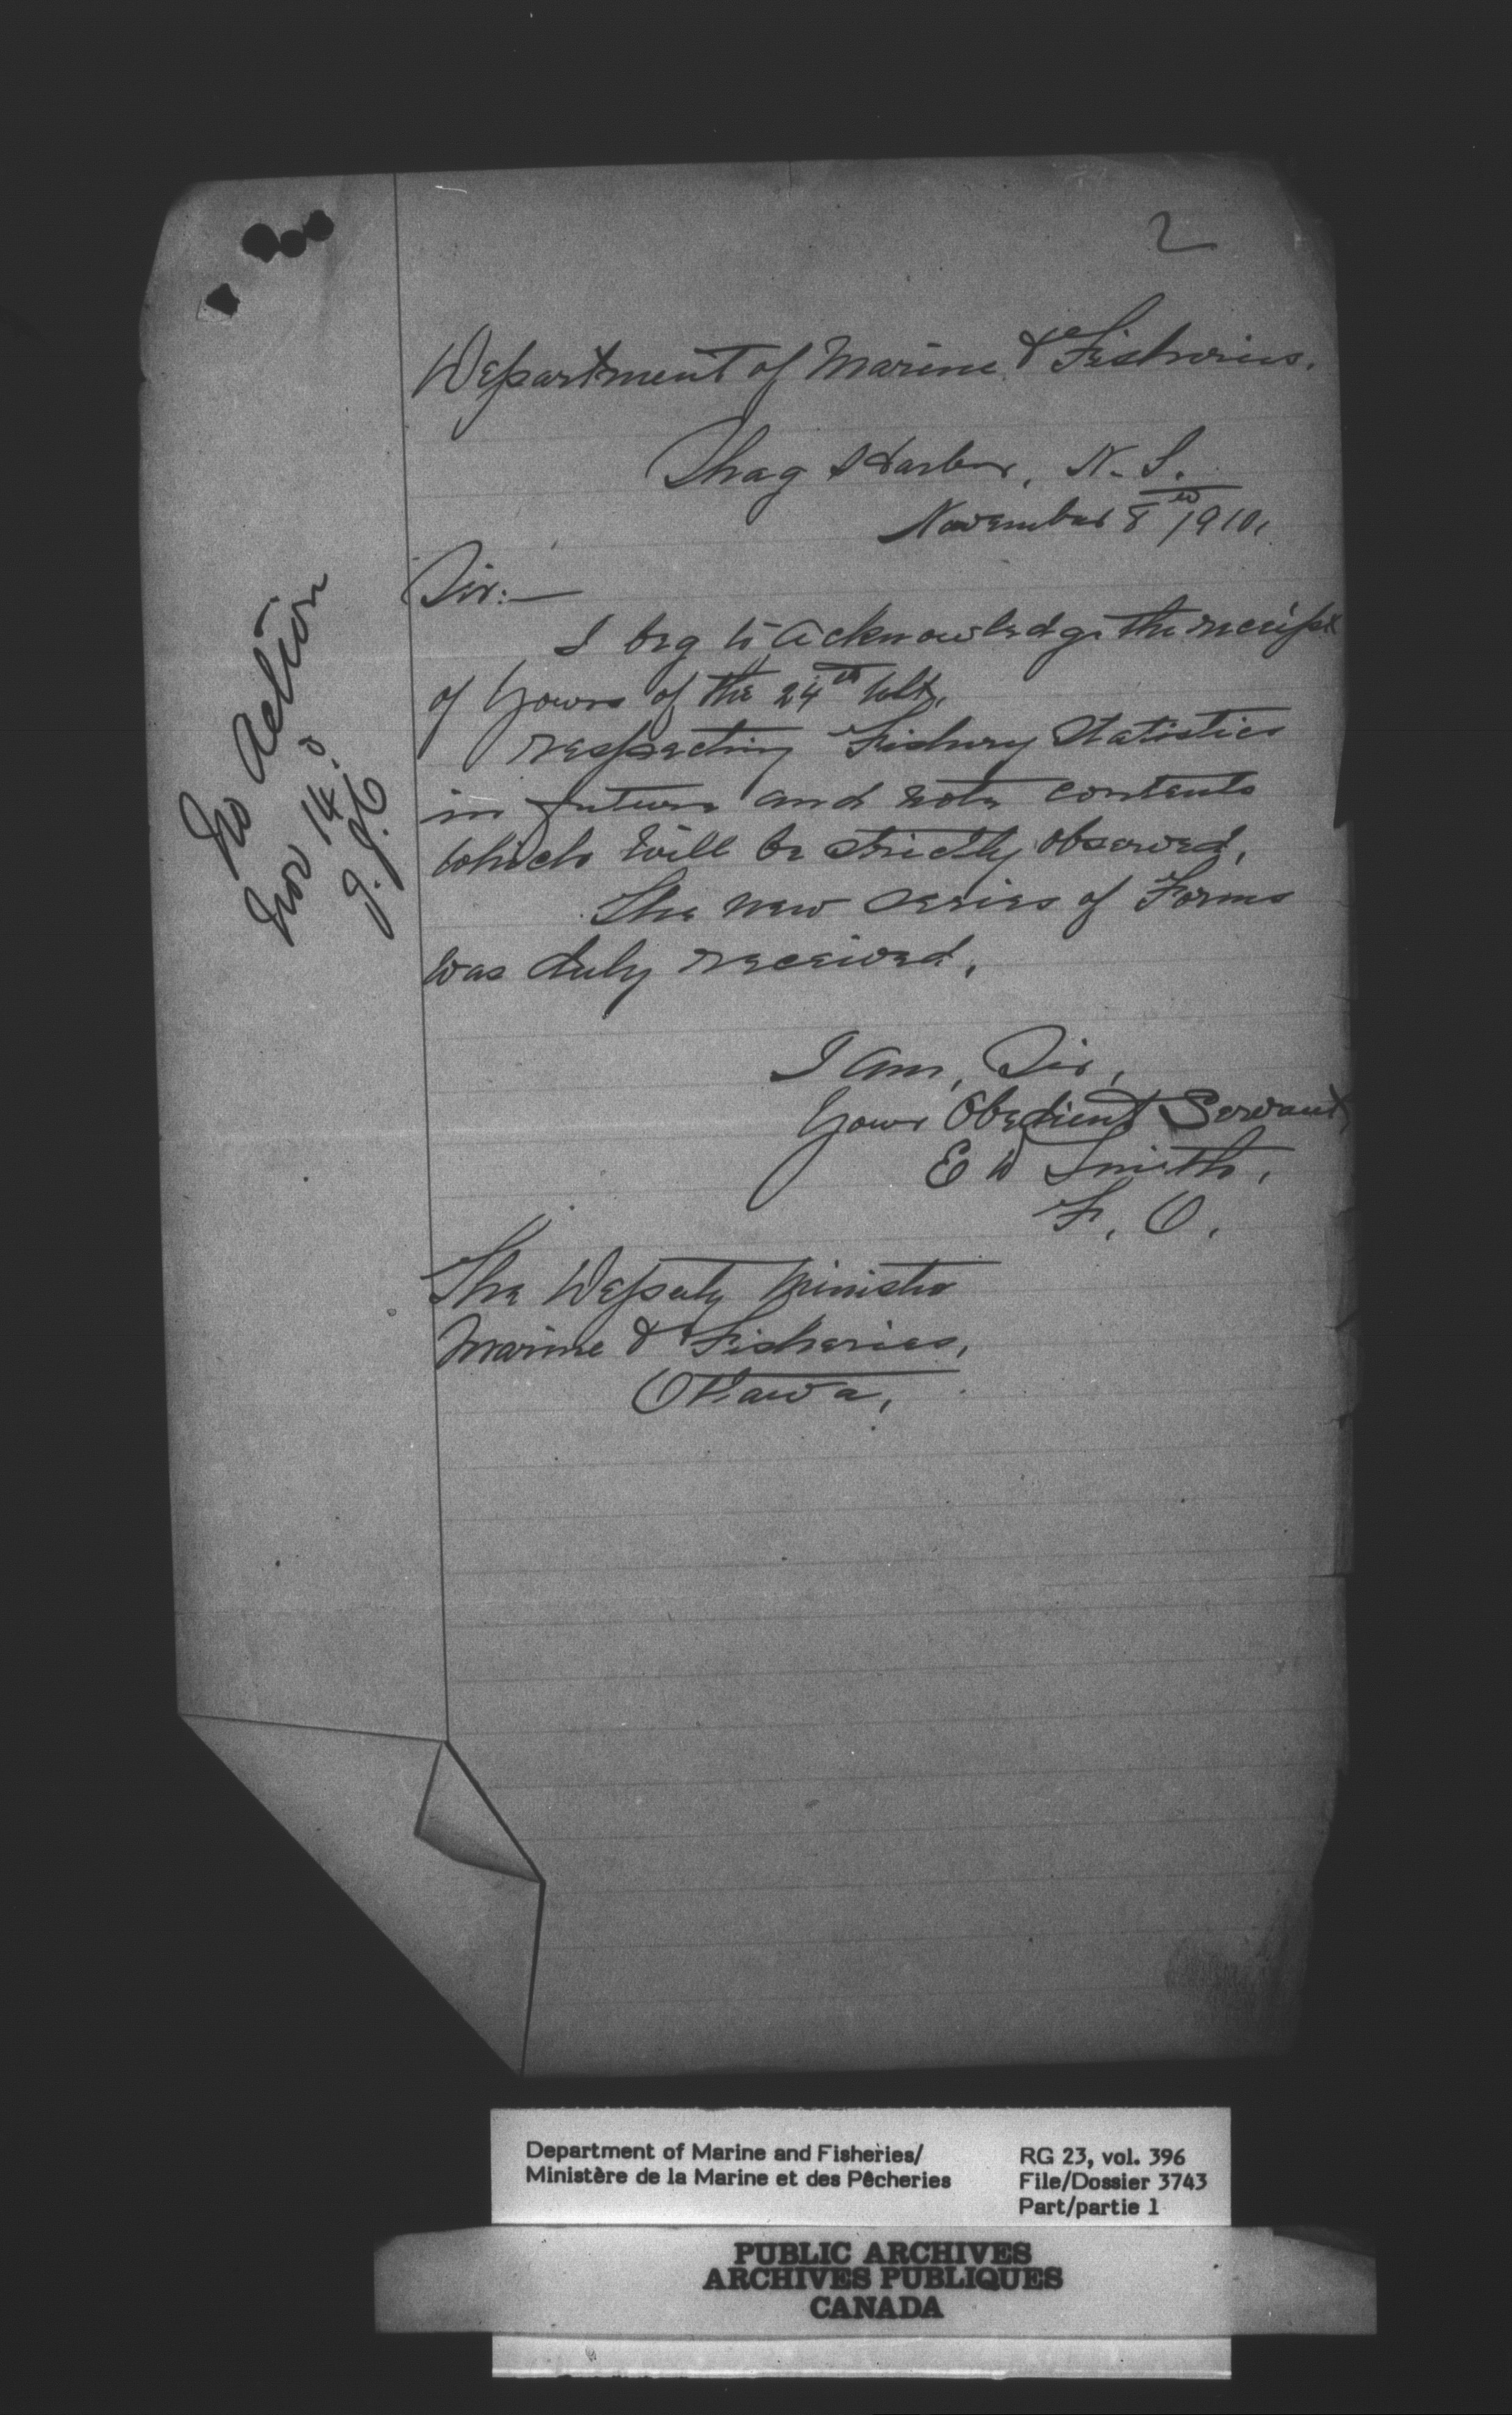 2
Department of Marine & Fisheries.
Shag Harbor, N. S.
November 8th 1910.
Sir:—
I beg to acknowledge the receipt
of yours of the 24th ult.
respecting Fishery Statistics
in future and note contents
which will be strictly observed.
The new series of Forms
was duly received.
I am, Sir,
Your Obedient Servant,
E W Smith,
F. O.
The Deputy Minister
Marine & Fisheries,
Ottawa.
No Action
Nov 14
Department of Marine and Fisheries/
Ministère de la Marine et des Pêcheries
RG 23, vol. 396
File/Dossier 3743
Part/partie 1
PUBLIC ARCHIVES
ARCHIVES PUBLIQUES
CANADA